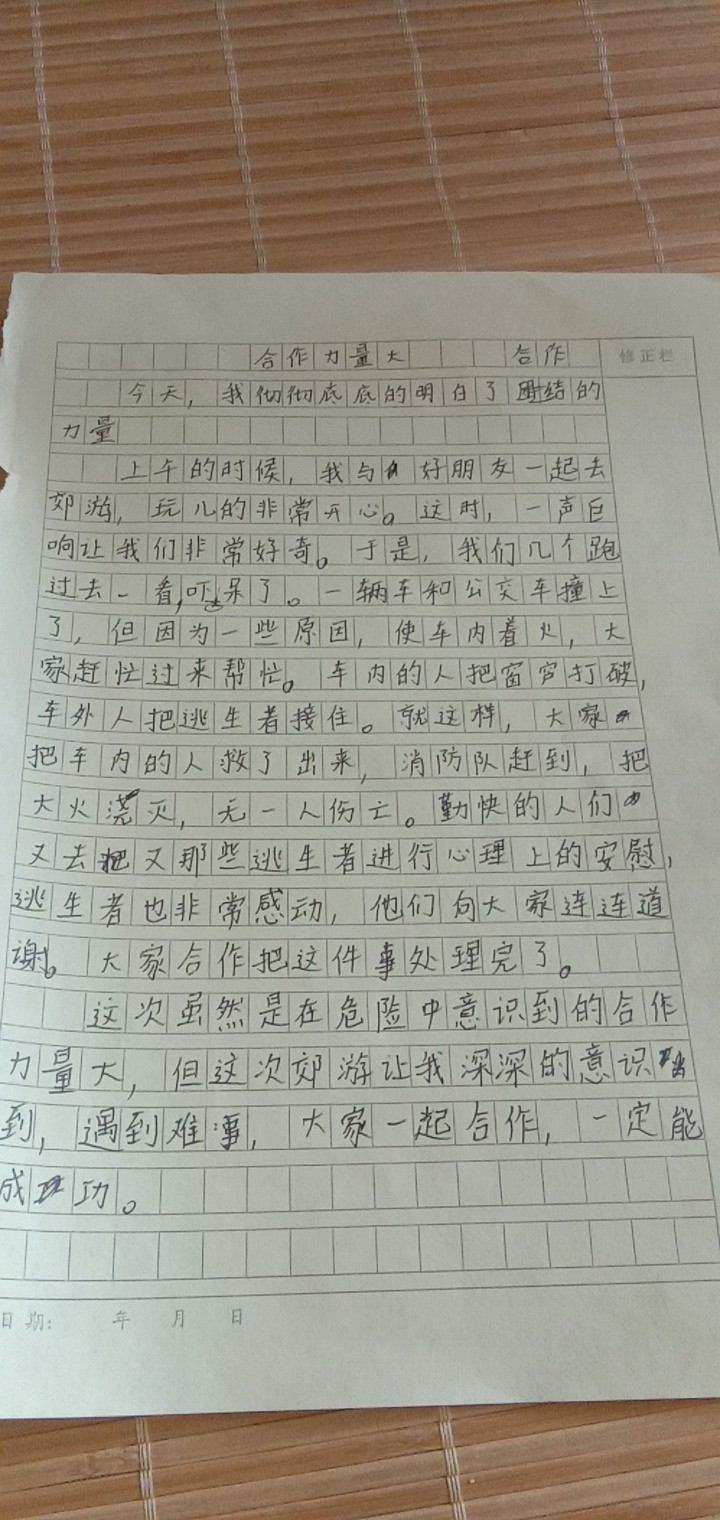 合作力量大 合作
修正栏
今天，我彻彻底底的明白了团结的
力量
上午的时候，我与好朋友一起去
郊游，玩儿的非常开心。这时，一声巨
响让我们非常好奇。于是，我们几个跑
过去一看，吓呆了。一辆车和公交车撞上
了，但因为一些原因，使车内着火，大
家赶忙过来帮忙。车内的人把窗穷打破，
车外人把逃生者接住。就这样，大家
把车内的人救了出来，消防队赶到，把
大火浇灭，无一人伤亡。勤快的人们
又去把又那些逃生者进行心理上的安慰，
逃生者也非常感动，他们向大家连连道
谢。大家合作把这件事处理完了。
这次虽然是在危险中意识到的合作
力量大，但这次郊游让我深深的意识
到，遇到难事，大家一起合作，一定能
成功。
日期： 年 月 日